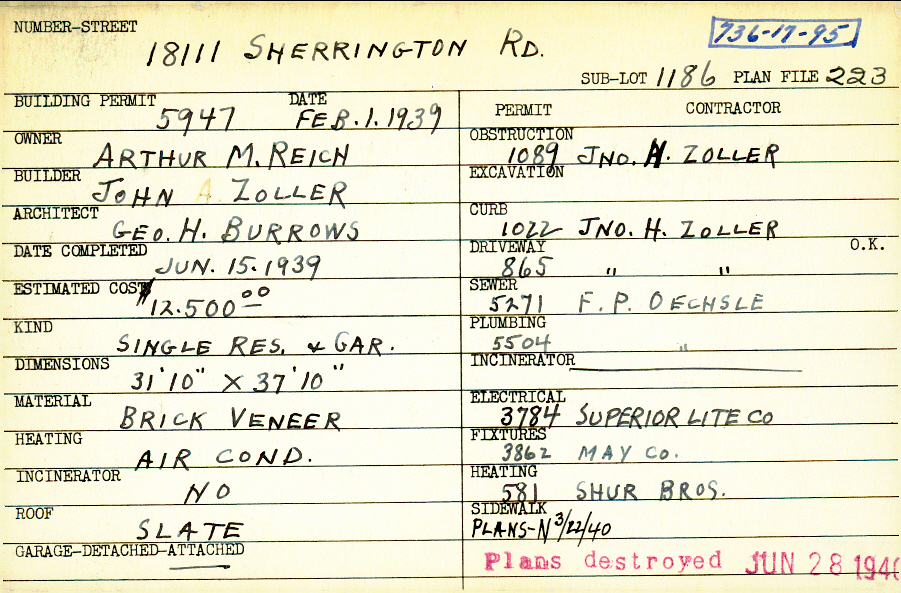 NUMBER-STREET
18111 SHERRINGTON RD.
736-17-95
SUB-LOT 1186 PLAN FILE 223
BUILDING PERMIT DATE
5947 FEB.1.1939
OWNER
ARTHUR M. REICH
BUILDER
JOHN A ZOLLER
ARCHITECT
GEO. H. BURROWS
DATE COMPLETED
JUN. 15. 1939
ESTIMATED COST
$12.500 00
KIND
SINGLE RES. & GAR.
DIMENSIONS
31'10" X 37'10"
MATERIAL
BRICK VENEER
HEATING
AIR COND.
INCINERATOR
NO
ROOF
SLATE
GARAGE-DETACHED-ATTACHED
PERMIT CONTRACTOR
OBSTRUCTION
1089 JNO. H. ZOLLER
EXCAVATION
CURB
1022 JNO. H. ZOLLER
DRIVEWAY O.K.
865 " "
SEWER
5271 F. P. OECHSLE
PLUMBING
5504 "
INCINERATOR
ELECTRICAL
3784 SUPERIOR LITE CO
FIXTURES
3862 MAY CO.
HEATING
581 SHUR BROS.
SIDEWALK
PLANS-N 3/22/40
Plans destroyed JUN 28 1940